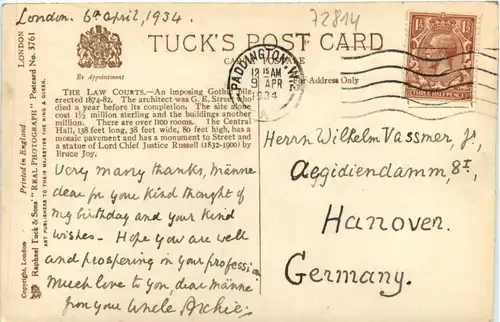 London. 6th april, 1934.
72814
TUCK'S POST CARD
CARTE POSTALE
By Appointment
For Address Only
PADDINGTON. W.2.
12 15 AM
9 APR
1934
THREE HALFPENCE
LONDON
Postcard No. 3761
Printed in England
Raphael Tuck & Sons' "REAL PHOTOGRAPH"
ART PUBLISHERS TO THEIR MAJESTIES THE KING & QUEEN.
Copyright, London
THE LAW COURTS.—An imposing Gothic pile
erected 1874-82. The architect was G. E. Street who
died a year before its completion. The site alone
cost 1½ million sterling and the buildings another
million. There are over 1100 rooms. The Central
Hall, 138 feet long, 38 feet wide, 80 feet high, has a
mosaic pavement and has a monument to Street and
a statue of Lord Chief Justice Russell (1832-1900) by
Bruce Joy.
Very many thanks, männe
dear for your kind thought of
my birthday and your kind
wishes. Hope you are well
and prospering in your profession
Much love to you, dear männe
from your Uncle Archie.
Herrn Wilhelm Vassmer, jr,
Aegidiendamm, 8I,
Hanover.
Germany.